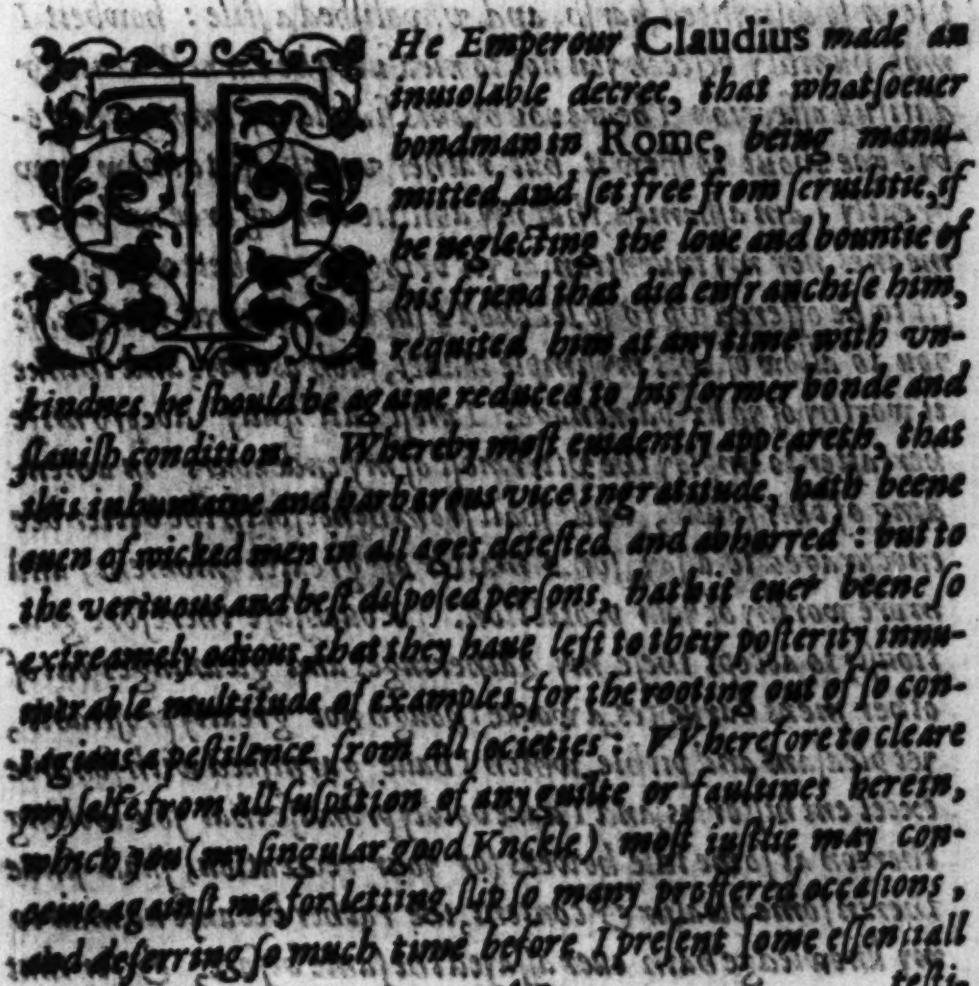 THe Emperour Claudius made an
inuiolable decree, that whatſoeuer
bondman in Rome, being manu-
mitted, and ſet free from ſeruilitie, if
he neglecting the loue and bountie of
his friend that did enfranchiſe him,
requited him at any time with vn-
kindnes, he ſhould be againe reduced to his former bonde and
ſlauiſh condition. Whereby moſt euidently appeareth, that
this inhumaine and barbarous vice ingratitude, hath beene
euen of wicked men in all ages deteſted and abhorred : but to
the vertuous and beſt diſpoſed perſons, hath it euer beene ſo
extreamely odious, that they haue left to their poſterity innu-
merable multitude of examples, for the rooting out of ſo con-
tagious a peſtilence from all ſocieties : VVherefore to cleare
my ſelfe from all ſuſpition of any guilte or faultines herein,
which you (my ſingular good Vnckle) moſt iuſtlie may con-
ceiue againſt me, for letting ſlip ſo many proffered occaſions,
and deferring ſo much time before I preſent ſome eſſentiall
teſti-